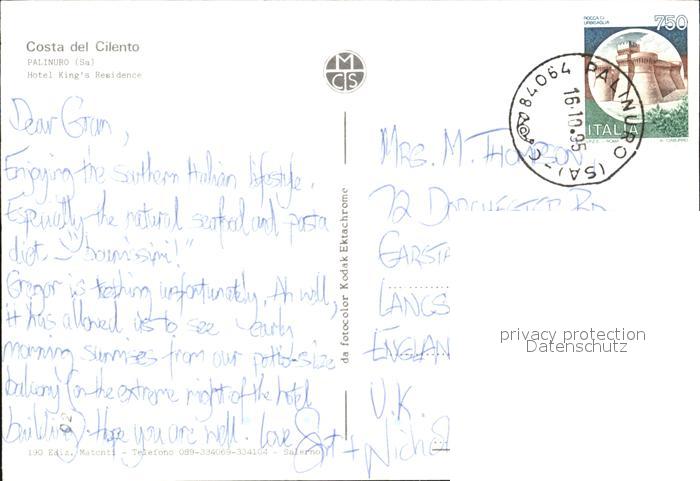 Costa del Cilento
PALINURO (Sa)
Hotel King's Residence
MCS
ROCCA DI URBISAGLIA
750
ITALIA
84064 PALINURO (SA)-C.
16.10.95
Dear Gran,
Enjoying the southern Italian lifestyle.
Especially the natural seafood and pasta
diet - "buonissimi!"
Gregor is teething unfortunately. Ah well,
it has allowed us to see early
morning sunrises from our patio-size
balcony (on the extreme right of the hotel
building). Hope you are well. Love
+ Nich
MRS. M. THOMPSON,
72 DORCHESTER RD
GARSTA
LANCS
ENGLAN
U.K.
da fotocolor Kodak Ektachrome
190 Ediz. Matonti - Telefono 089-334069-334104 - Salerno
privacy protection
Datenschutz